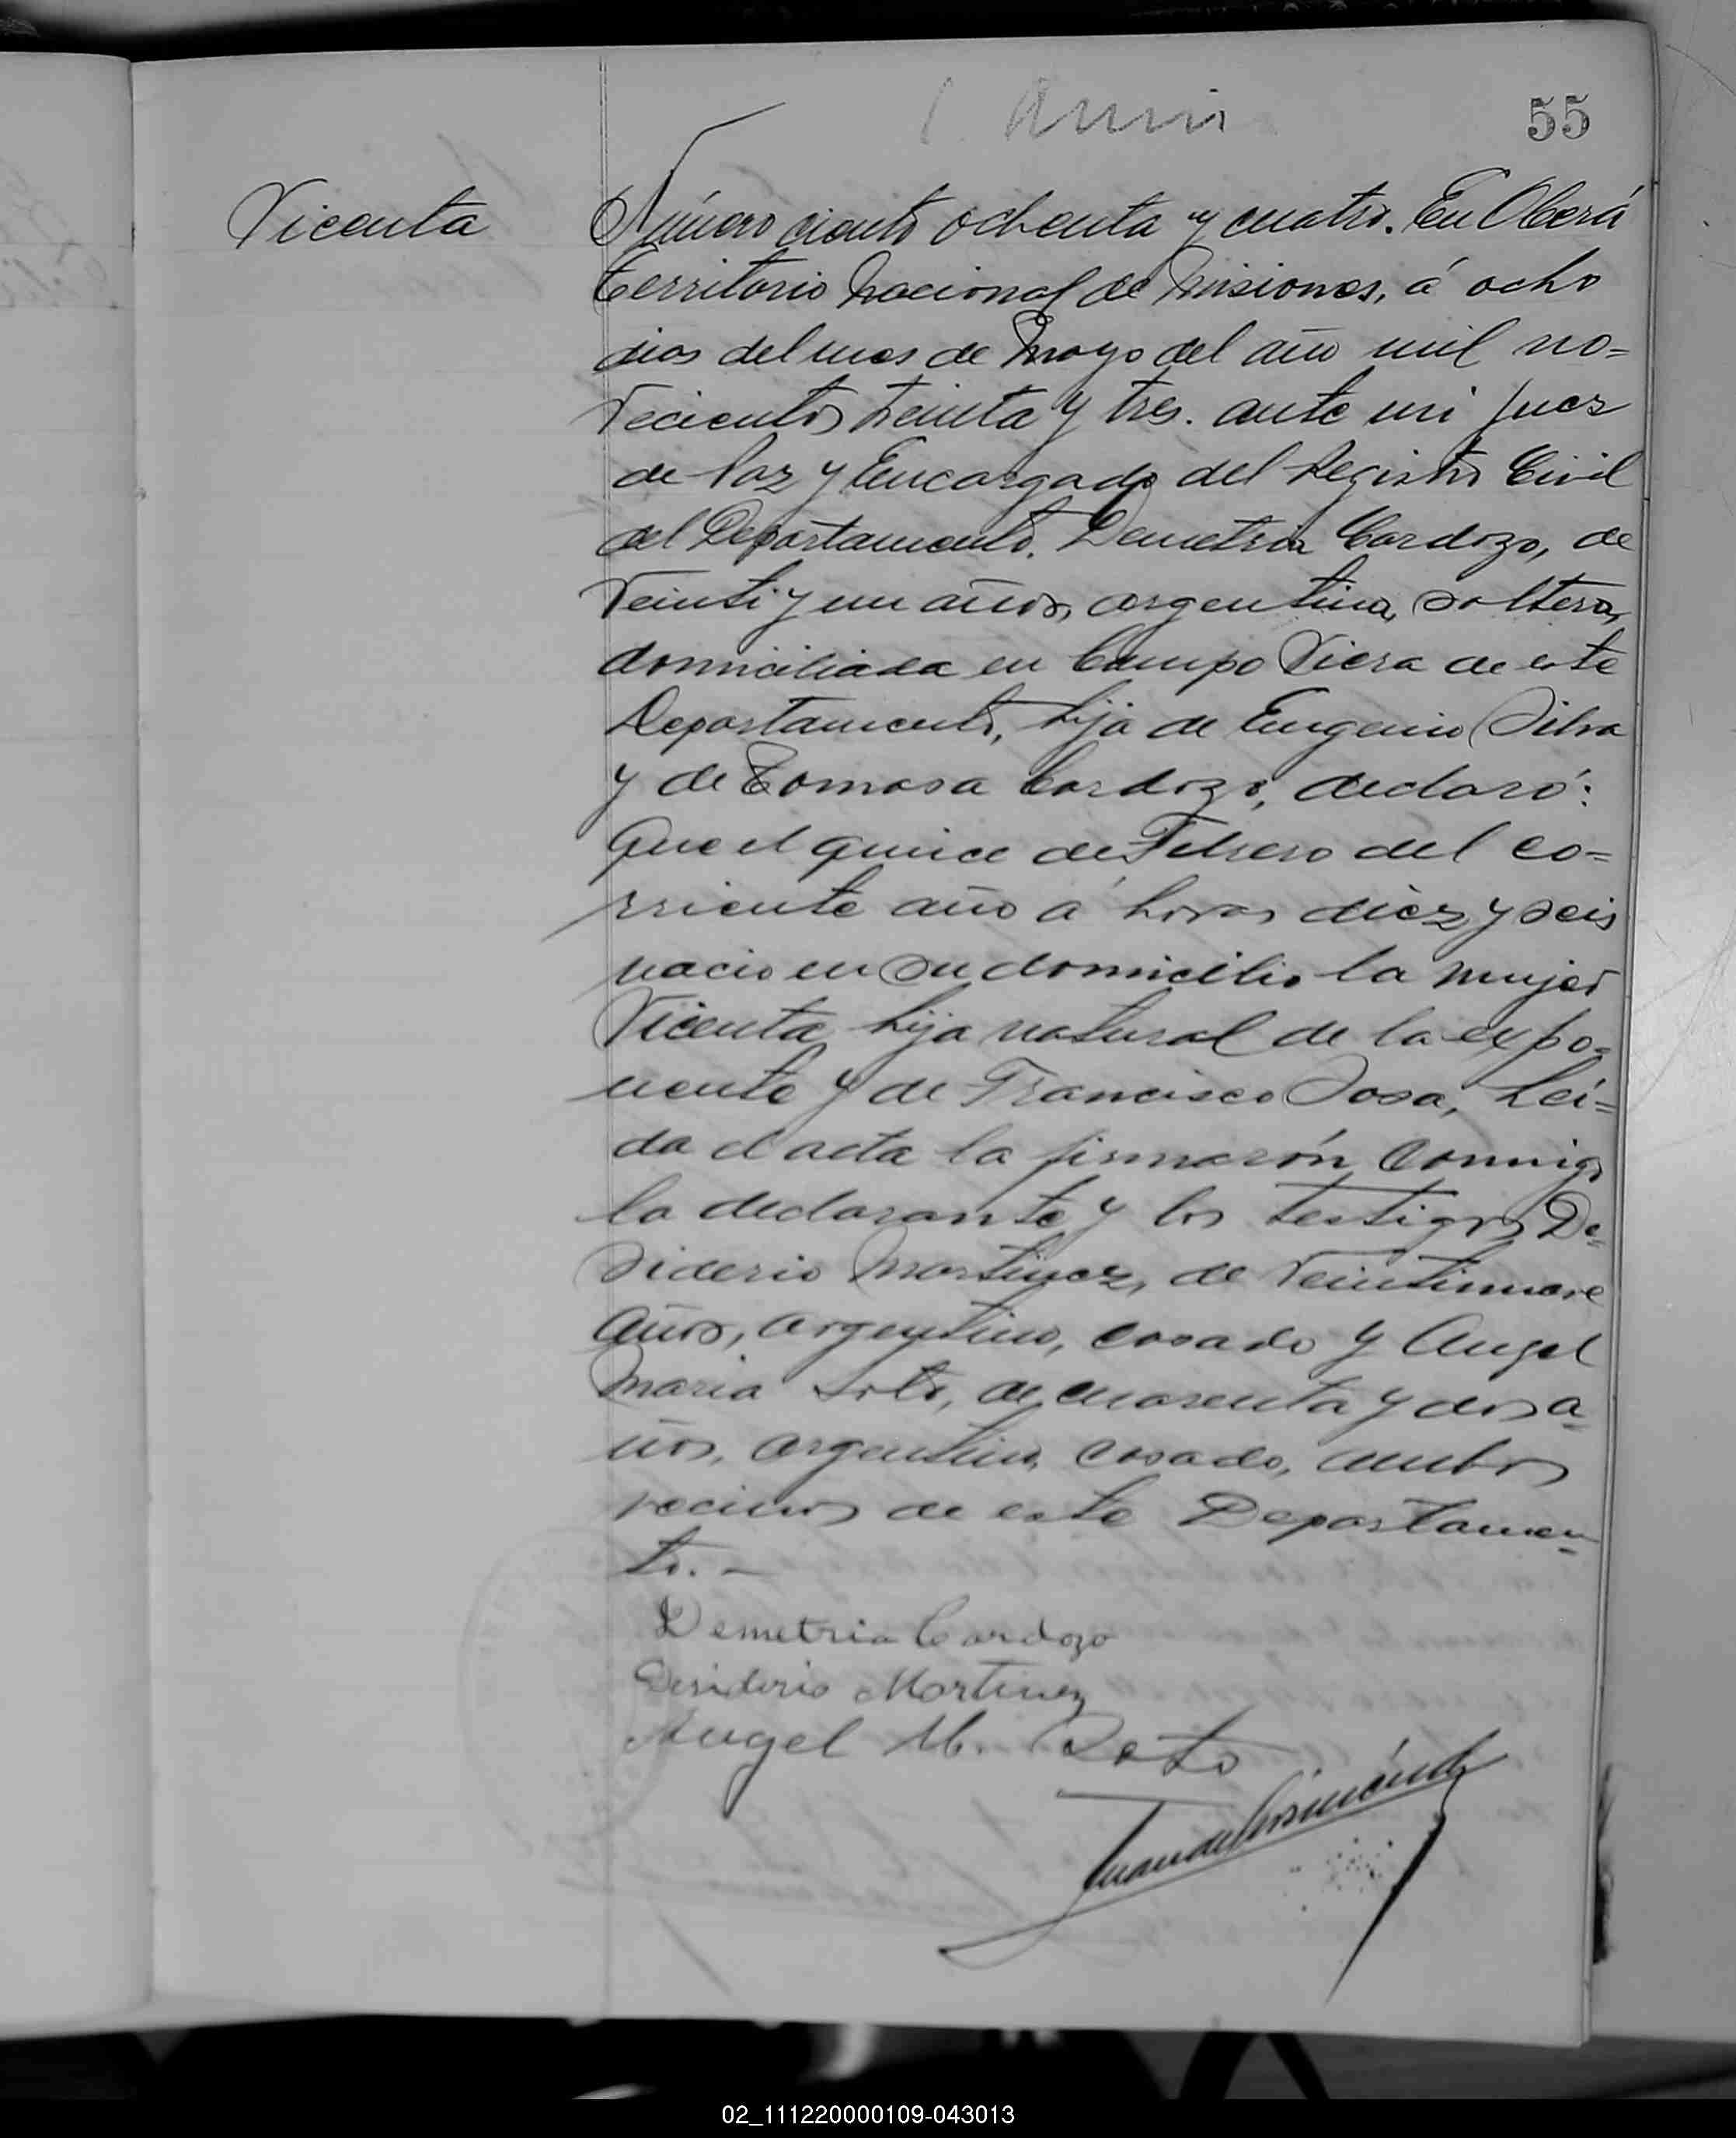 55
Vicenta
Número ciento ochenta y cuatro. En Oberá
Territorio Nacional de Misiones, á ocho
dias del mes de Mayo del año mil no=
vecientos treinta y tres. ante mi Juez
de Paz y Encargado del Registro Civil
del Departamento. Demetria Cardozo, de
veinti y un años, argentina, soltera,
domiciliada en Campo Viera de este
Departamento, hija de Eugenio Silva
y de Tomasa Cardozo, declaró:
Que el quince de Febrero del co=
rriente año á horas diez y seis
nacio en su domicilio la mujer
Vicenta hija natural de la expo=
nente y de Francisco Sosa, Leí=
da el acta la firmarón conmigo
la declarante y los testigos De=
siderio Martinez, de veintinueve
años, argentino, casado y Angel
Maria Soto, de cuarenta y dos a=
ños, argentino, casado, ambos
vecinos de este Departamen=
to. -
Demetria Cardozo
Desiderio Martinez
Angel M. Soto